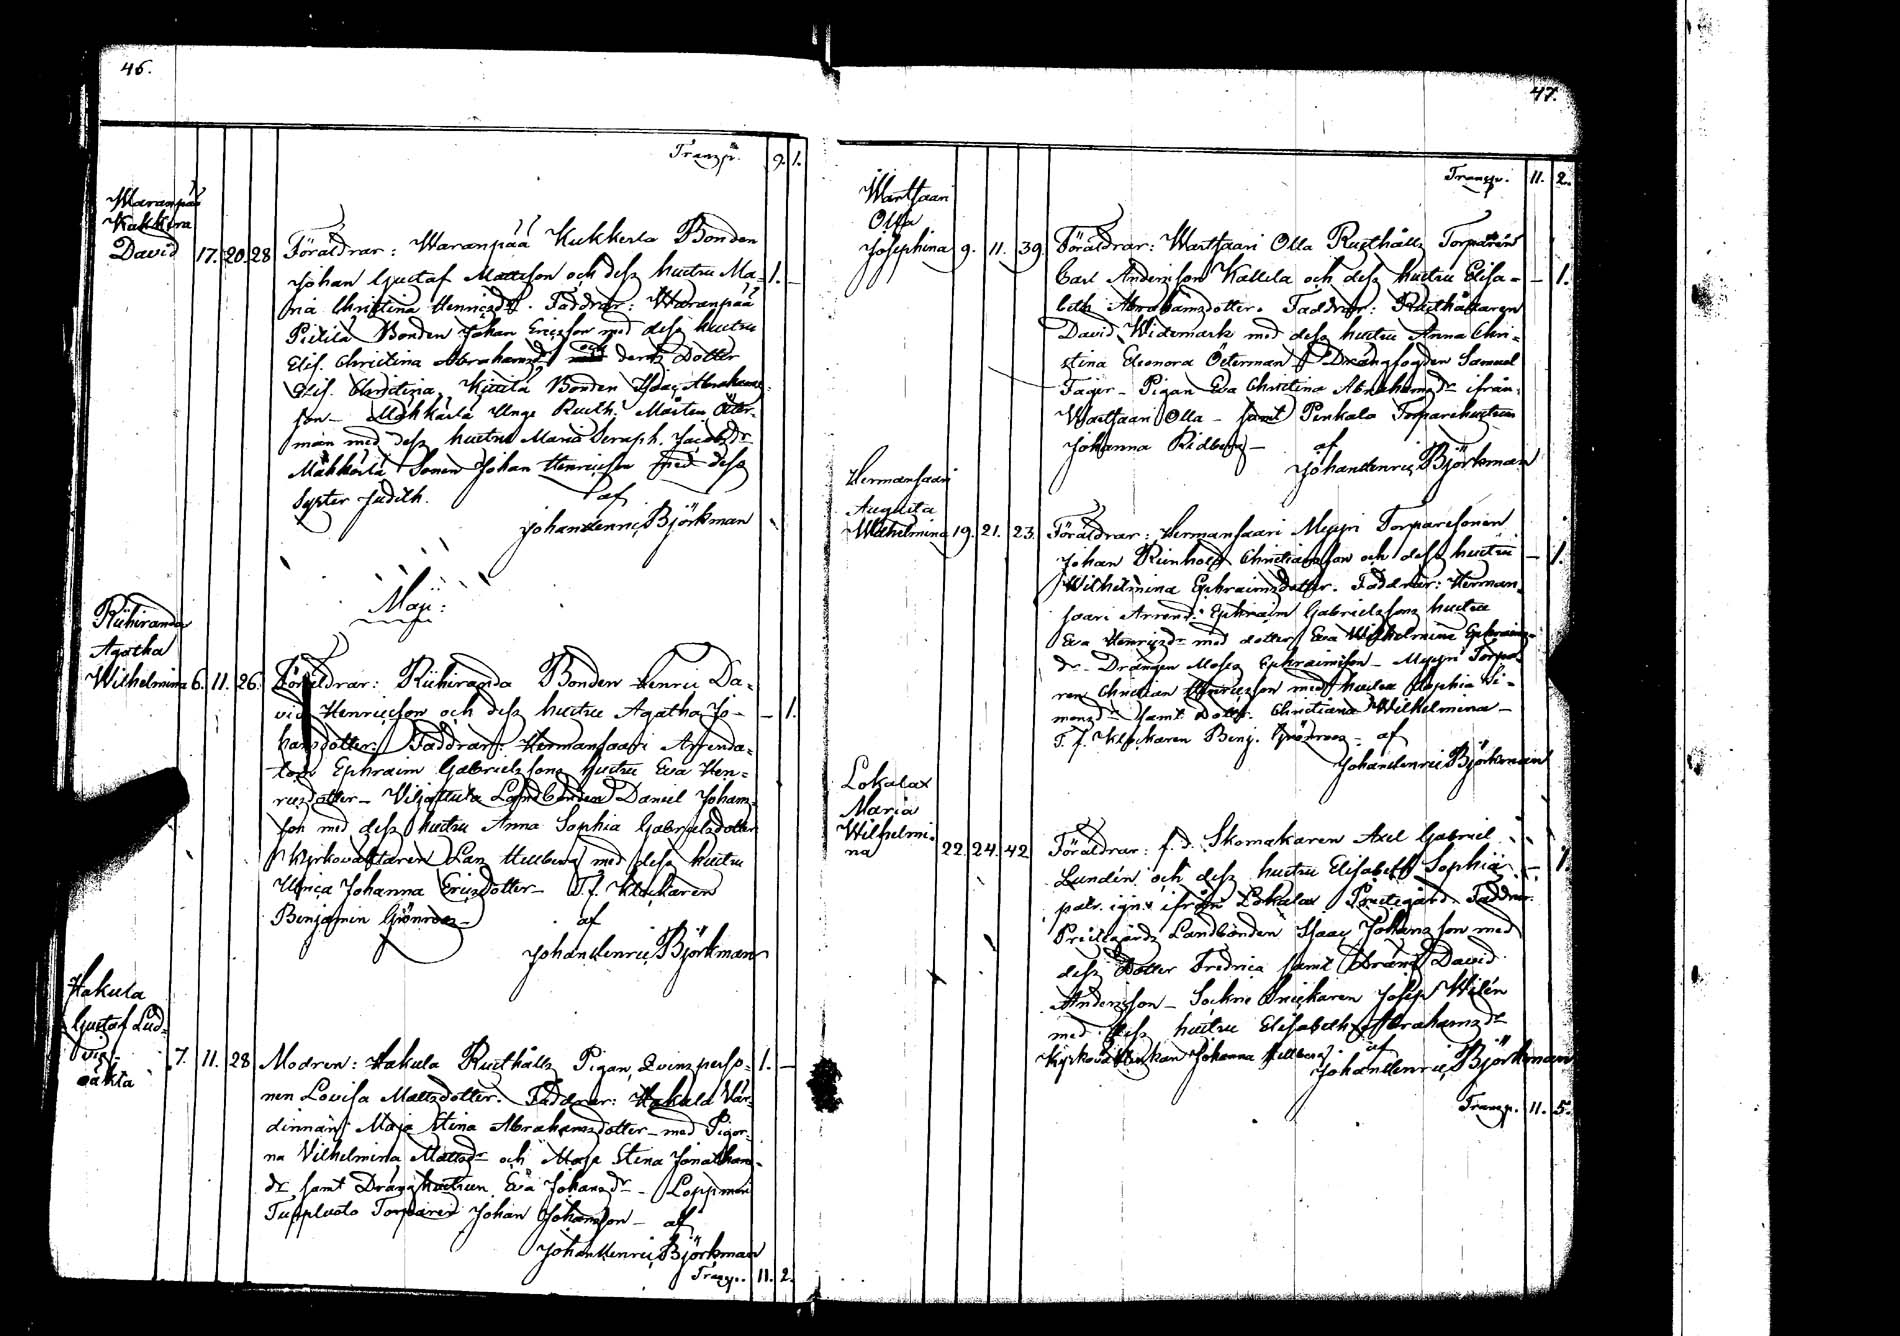 46.
Transp. 9. 1.
Waranpää
Kukkerla
David 17. 20. 28 Föräldrar: Waranpää Kukkerla Bonden
Johan Gustaf Mattsson och dess hustru Ma- 1. –
ria Christina Henricsdr. Faddrar: Waranpää
Pietilä Bonden Johan Ericsson med dess hustru
Elis. Christina Abrahamsdr och deras Dotter
Elis. Christina, Bonden Isaac Abrahams-
son – Mäkkärlä Unge Rusth. Mårten Öster-
man med dess hustru Maria Seraph. Jacobsdr
Mäkkärlä Sonen Johan Henricsson med dess
Syster Judith. af
Johan Henric Björkman
Maji:
Riihiranda
Agatha
Wilhelmina 6. 11. 26. Föräldrar: Riihiranda Bonden Henric Da-
vid Henricsson och dess hustru Agatha Jo- – 1.
hansdotter. Faddrar: Hermansaari Arrenda-
torn Ephraim Gabrielssons hustru Eva Hen-
ricsdotter – Landbonden Daniel Johans-
son med dess hustru Anna Sophia Gabrielsdotter
Kyrkovaktaren Hellberg med dess hustru
Ulrica Johanna Ericsdotter – T. f. Klockaren
Benjamin Grönroos – af
Johan Henric Björkman
Hakula
Gustaf Lud-
vig –
oäkta 7. 11. 28 Modren: Hakula Rusthålls Pigan, Qvinsperso- 1. –
nen Lovisa Mattsdotter. Faddrar: Hakula Vär-
dinnan Maja Stina Abrahamsdotter – med Pigor-
na Vilhelmina Mattsdr och Maja Stina Jonathans-
dr samt Dränghustrun Eva Johansdr – Loppmeri
Tuppluoto Torparen Johan Johansson – af
Johan Henric Björkman
Transp. 11. 2.
47.
Transp. 11. 2.
Wartsaari
Olla
Josephina 9. 11. 39. Föräldrar: Wartsaari Olla Rusthålls Torparen
Carl Andersson Kallela och dess hustru Elisa- – 1.
beth Abrahamsdotter. Faddrar: Rusthållaren
David Widemark med dess hustru Anna Chri-
stina Eleonora Österman – Drängfogden Samuel
Fager – Pigan Eva Christina Abrahamsdr ifrån
Wartsaari Olla – samt Penkala Torparehustrun
Johanna Ridberg – af
Johan Henric Björkman
Hermansaari
Augusta
Wilhelmina 19. 21. 23. Föräldrar: Hermansaari Myyri Torparesonen
Johan Reinhold Christiansson och dess hustru – 1.
Wilhelmina Ephraimsdotter. Faddrar: Herman-
saari Arrend. Ephraim Gabrielssons hustru
Eva Henricsdr med dotter Eva Wilhelmina Ephraims-
dr – Drängen Moses Ephraimsson – Myyri Torpa-
ren Christian Henricsson med hustru Sophia Si-
monsdr samt Dotter Christiana Wilhelmina –
T. f. Klockaren Benj. Grönroos – af
Johan Henric Björkman
Lokalax
Maria
Wilhelmi-
na 22. 24. 42 Föräldrar: f. d. Skomakaren Axel Gabriel
Lundén och dess hustru Elisabeth Sophia – 1.
patr. ign. ifrån Lokalax Prestegård. Faddrar:
Prestegårds Landbonden Isaac Johansson med
dess Dotter Fredrica samt Dräng David
Andersson – Sockne Snickaren Josep Wilén
med dess hustru Elisabeth Abrahamsdr
Kyrkovaktarskan Johanna Hellberg. af
Johan Henric Björkman
Transp. 11. 5.